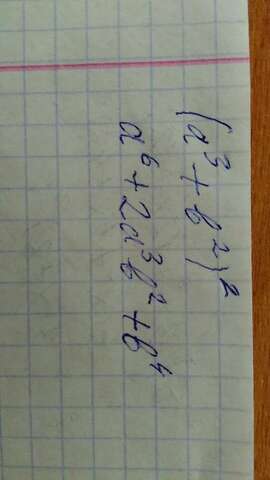 (a³ + b²)²
a⁶ + 2a³b² + b⁴